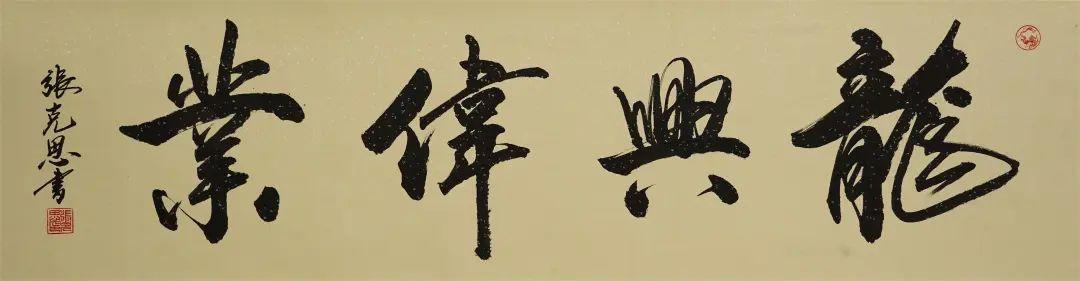 龍興偉業
張克思书